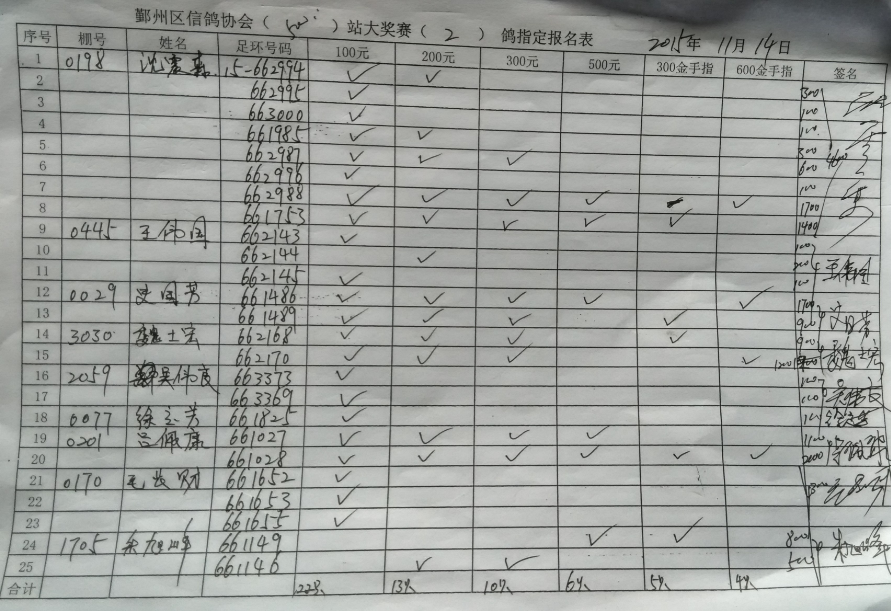 鄞州区信鸽协会（ 500 ）站大奖赛（ 2 ）鸽指定报名表 2015年 11月 14日
序号 棚号 姓名 足环号码 100元 200元 300元 500元 300金手指 600金手指 签名
1 0198 15-662994 ✓ ✓ 300
2 662995 ✓ 100
3 663000 ✓ 100
4 661985 ✓ ✓ 300
5 662987 ✓ ✓ ✓ 600 4600
6 662996 ✓ 100
7 662988 ✓ ✓ ✓ ✓ ✓ 1700
8 661753 ✓ ✓ ✓ ✓ ✓ 1400
9 0445 王伟国 662143 ✓ 100
10 662144 ✓ 200
11 662145 ✓ 100
12 0029 661486 ✓ ✓ ✓ ✓ ✓ 1700
13 661489 ✓ ✓ ✓ ✓ 900
14 3030 魏士宏 662168 ✓ ✓ ✓ ✓ 900 魏士宏
15 662170 ✓ ✓ ✓ ✓ 1200
16 2059 吴伟 663373 ✓ 100
17 663369 ✓ 100
18 0077 徐 芳 661825 ✓ 100
19 0201 吕佩康 661027 ✓ ✓ ✓ ✓ 1100
20 661028 ✓ ✓ ✓ ✓ ✓ ✓ 2000
21 0170 毛 财 661652 ✓
22 661653 ✓ 300
23 661655 ✓
24 1705 旭峰 661149 ✓ ✓ 800
25 661146 ✓ ✓ 500
合计 22只 13只 10只 6只 5只 4只